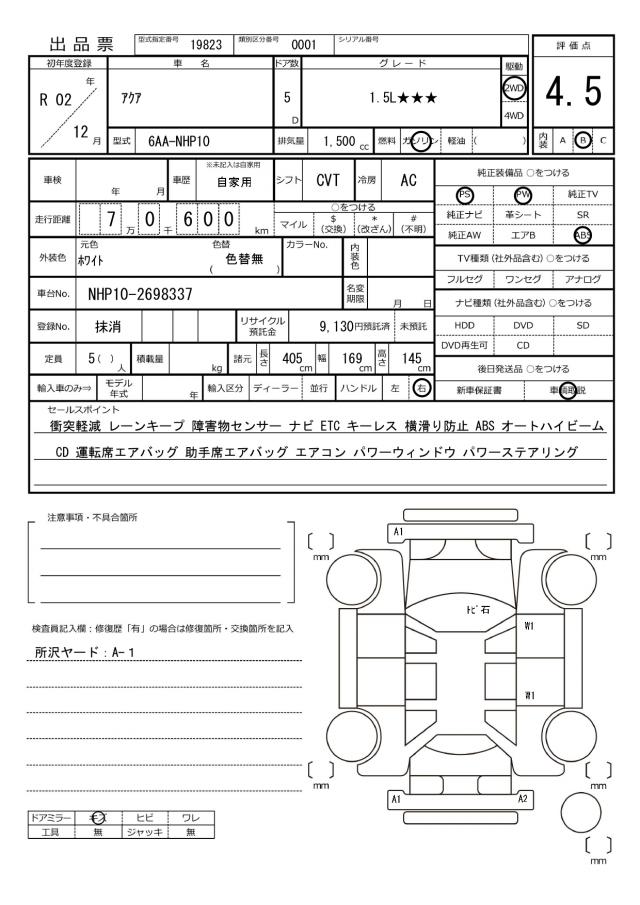 出品票 型式指定番号 19823 類別区分番号 0001 シリアル番号
評価点
4.5
内装 A B C
初年度登録 車名 ドア数 グレード 駆動
R 02 年 12 月 アクア 5 D 1.5L★★★ 2WD 4WD
型式 6AA-NHP10 排気量 1,500 cc 燃料 ガソリン 軽油 ( )
車検 年 月 車歴 ※未記入は自家用 自家用 シフト CVT 冷房 AC
走行距離 7 万 0 千 6 0 0 km ○をつける
マイル $ (交換) * (改ざん) # (不明)
外装色 元色 ホワイト 色替 ( 色替無 ) カラーNo. 内装色
車台No. NHP10-2698337 名変期限 月 日
登録No. 抹消 リサイクル預託金 9,130円預託済 未預託
定員 5( ) 人 積載量 kg 諸元 長さ 405 cm 幅 169 cm 高さ 145 cm
輸入車のみ⇒ モデル年式 年 輸入区分 ディーラー 並行 ハンドル 左 右
純正装備品 ○をつける
PS PW 純正TV
純正ナビ 革シート SR
純正AW エアB ABS
TV種類 (社外品含む) ○をつける
フルセグ ワンセグ アナログ
ナビ種類 (社外品含む) ○をつける
HDD DVD SD
DVD再生可 CD
後日発送品 ○をつける
新車保証書 車輌取説
セールスポイント
衝突軽減 レーンキープ 障害物センサー ナビ ETC キーレス 横滑り防止 ABS オートハイビーム
CD 運転席エアバッグ 助手席エアバッグ エアコン パワーウィンドウ パワーステアリング
注意事項・不具合箇所
検査員記入欄：修復歴「有」の場合は修復箇所・交換箇所を記入
所沢ヤード：A-1
ドアミラー キズ ヒビ ワレ
工具 無 ジャッキ 無
A1
mm
mm
トビ石
W1
W1
mm
mm
A1 A2
mm